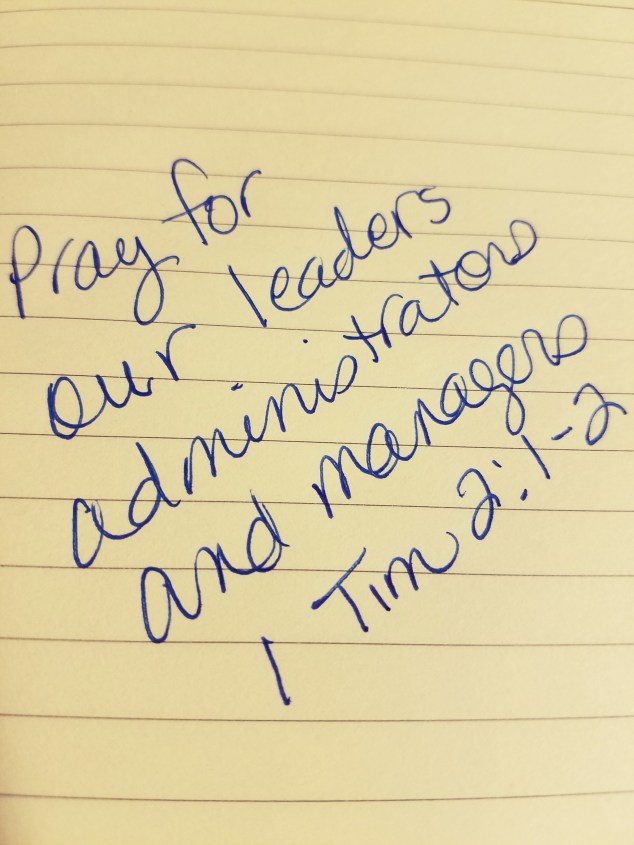 Pray for
our leaders
administrators
and managers
1 Tim 2:1-2